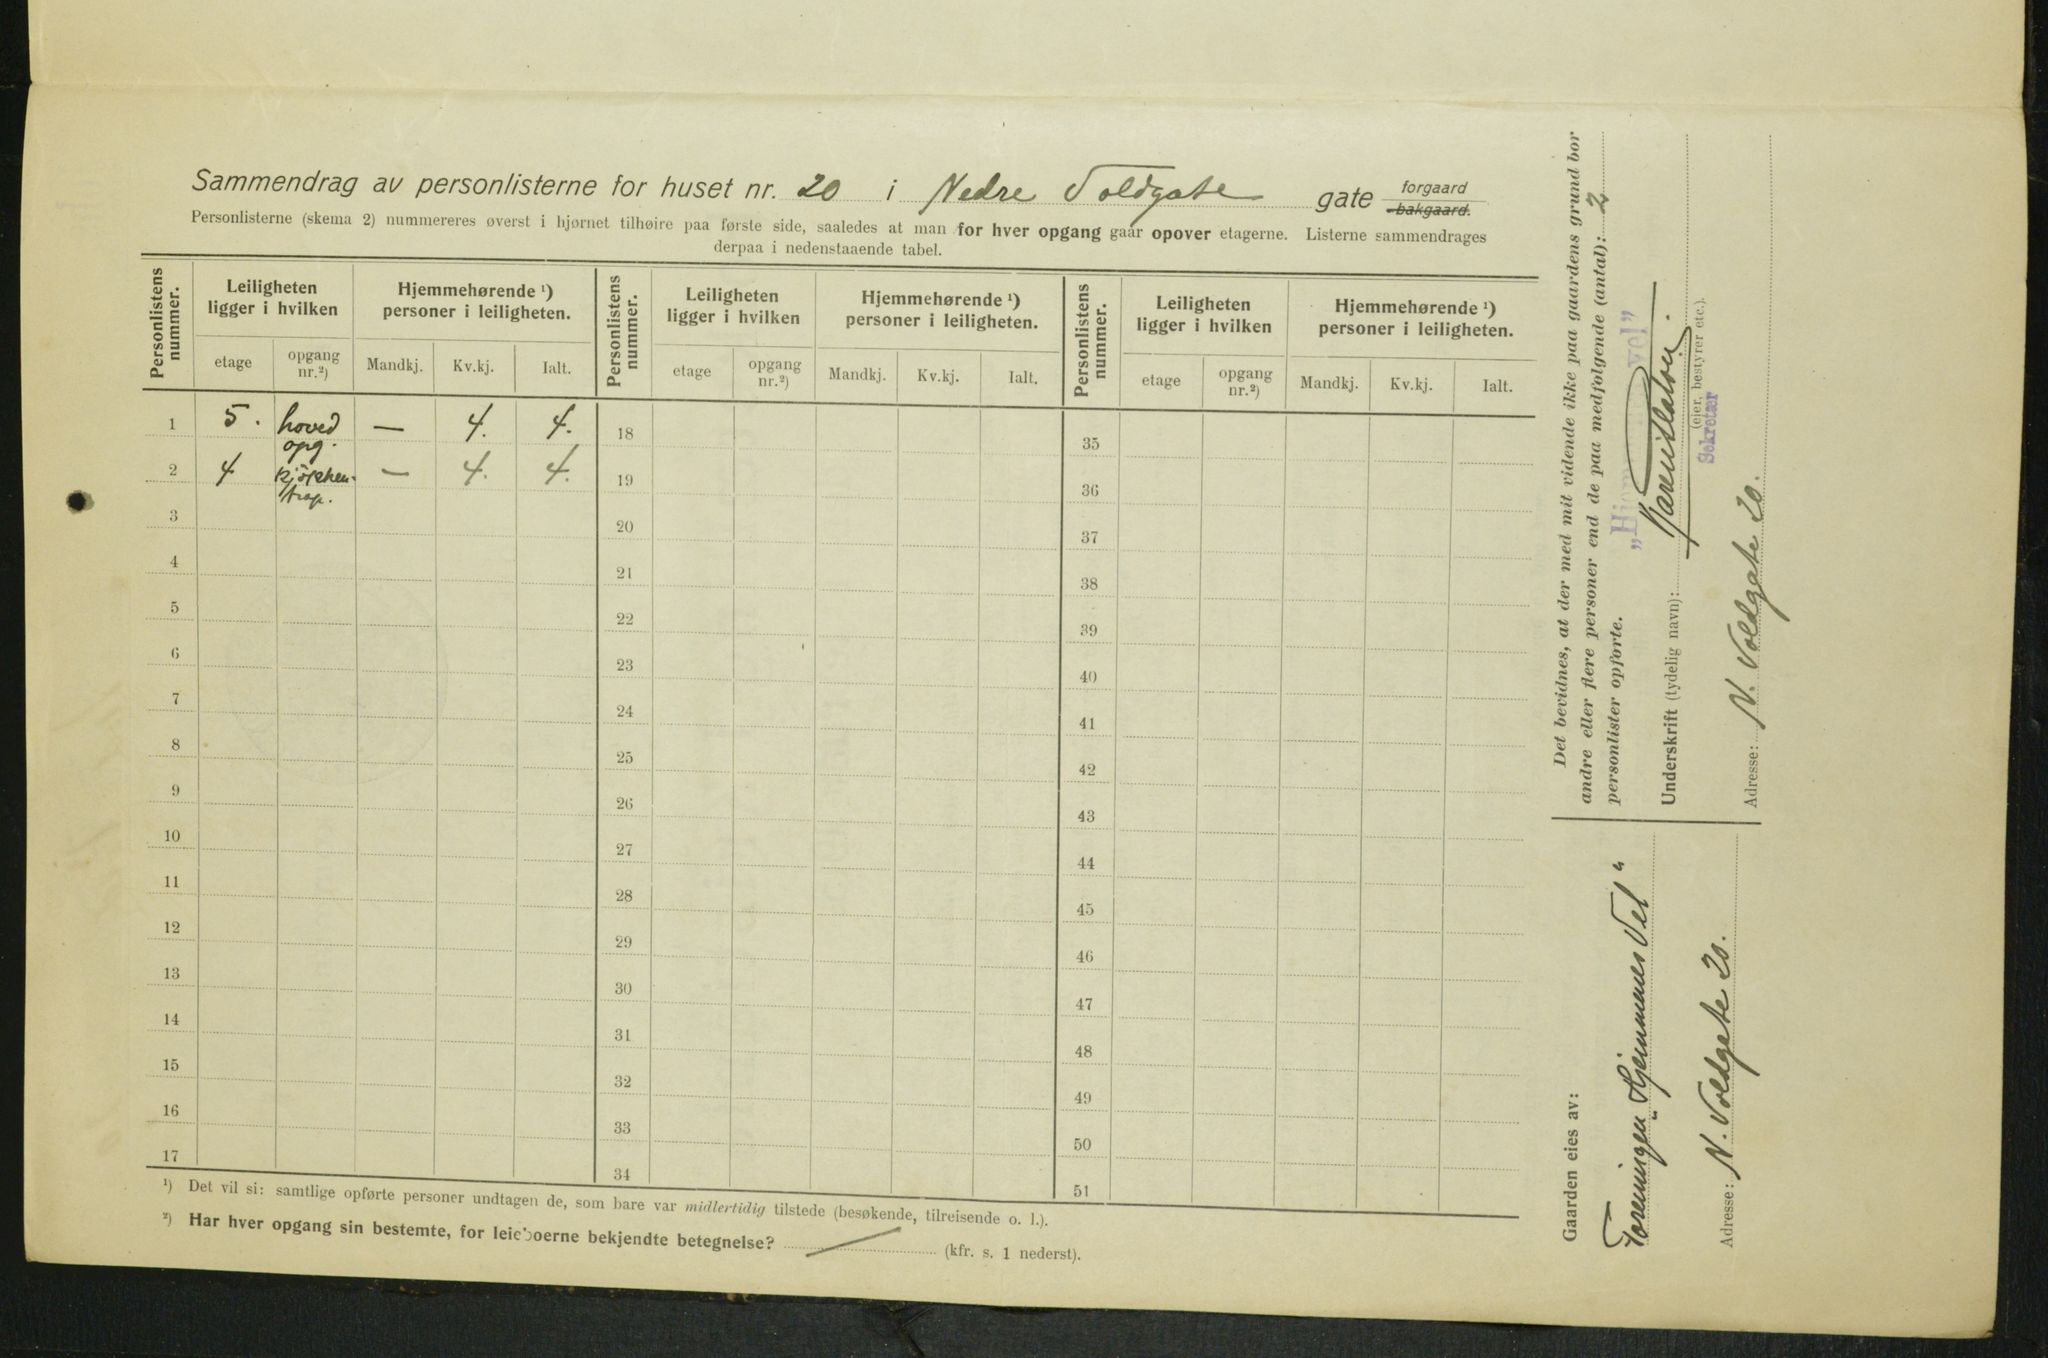 Sammendrag av personlisterne for huset nr. 20 i Nedre Voldgate gate forgaard
bakgaard.
Personlisterne (skema 2) nummereres øverst i hjørnet tilhøire paa første side, saaledes at man for hver opgang gaar opover etagerne. Listerne sammendrages
derpaa i nedenstaaende tabel.
Personlistens nummer. Leiligheten ligger i hvilken Hjemmehørende ¹) personer i leiligheten. Personlistens nummer. Leiligheten ligger i hvilken Hjemmehørende ¹) personer i leiligheten. Personlistens nummer. Leiligheten ligger i hvilken Hjemmehørende ¹) personer i leiligheten.
etage opgang nr.²) Mandkj. Kv.kj. Ialt. etage opgang nr.²) Mandkj. Kv.kj. Ialt. etage opgang nr.²) Mandkj. Kv.kj. Ialt.
1 5. hoved opg. — 4. 4. 18 35
2 4 kjøkken- trap. — 4. 4. 19 36
3 20 37
4 21 38
5 22 39
6 23 40
7 24 41
8 25 42
9 26 43
10 27 44
11 28 45
12 29 46
13 30 47
14 31 48
15 32 49
16 33 50
17 34 51
¹) Det vil si: samtlige opførte personer undtagen de, som bare var midlertidig tilstede (besøkende, tilreisende o. l.).
²) Har hver opgang sin bestemte, for leieboerne bekjendte betegnelse? — (kfr. s. 1 nederst).
Det bevidnes, at der med mit vidende ikke paa gaardens grund bor
andre eller flere personer end de paa medfølgende (antal): 2
personlister opførte.
Underskrift (tydelig navn):
(eier, bestyrer etc.).
Sekretær
Adresse: N. Voldgate 20.
Gaarden eies av:
Foreningen „Hjemmenes Vel"
Adresse: N. Voldgate 20.